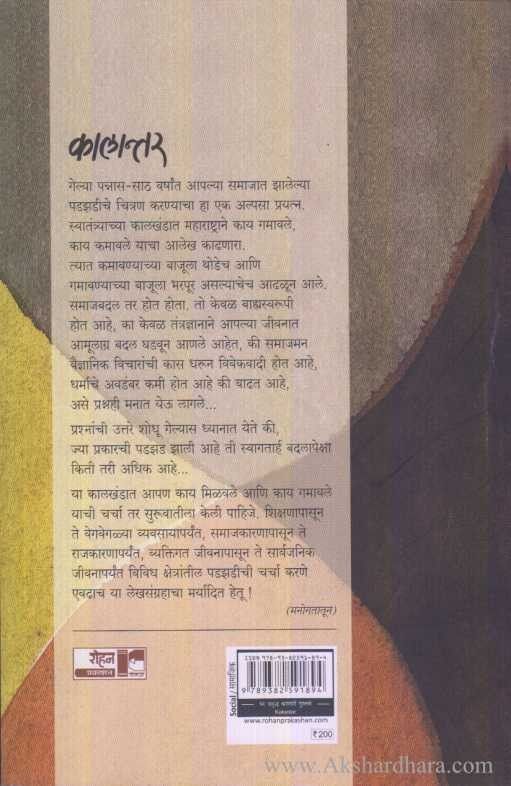 कालान्तर
गेल्या पन्नास-साठ वर्षांत आपल्या समाजात झालेल्या
पडझडीचे चित्रण करण्याचा हा एक अल्पसा प्रयत्न.
स्वातंत्र्याच्या कालखंडात महाराष्ट्राने काय गमावले,
काय कमावले याचा आलेख काढणारा.
त्यात कमावण्याच्या बाजूला थोडेच आणि
गमावण्याच्या बाजूला भरपूर असल्याचेच आढळून आले.
समाजबदल तर होत होता. तो केवळ बाह्यस्वरूपी
होत आहे, का केवळ तंत्रज्ञानाने आपल्या जीवनात
आमूलाग्र बदल घडवून आणले आहेत, की समाजमन
वैज्ञानिक विचारांची कास धरून विवेकवादी होत आहे,
धर्माचे अवडंबर कमी होत आहे की वाढत आहे,
असे प्रश्नही मनात येऊ लागले...
प्रश्नांची उत्तरे शोधू गेल्यास ध्यानात येते की,
ज्या प्रकारची पडझड झाली आहे ती स्वागतार्ह बदलापेक्षा
किती तरी अधिक आहे...
या कालखंडात आपण काय मिळवले आणि काय गमावले
याची चर्चा तर सुरूवातीला केली पाहिजे. शिक्षणापासून
ते वेगवेगळ्या व्यवसायापर्यंत, समाजकारणापासून ते
राजकारणापर्यंत, व्यक्तिगत जीवनापासून ते सार्वजनिक
जीवनापर्यंत विविध क्षेत्रांतील पडझडीची चर्चा करणे
एवढाच या लेखसंग्रहाचा मर्यादित हेतू !
(मनोगतातून)
रोहन
प्रकाशन
Social / सामाजिक
ISBN 978-93-82591-89-4
9 789382 591894
Kalantar
www.rohanprakashan.com
₹200
www.Akshardhara.com